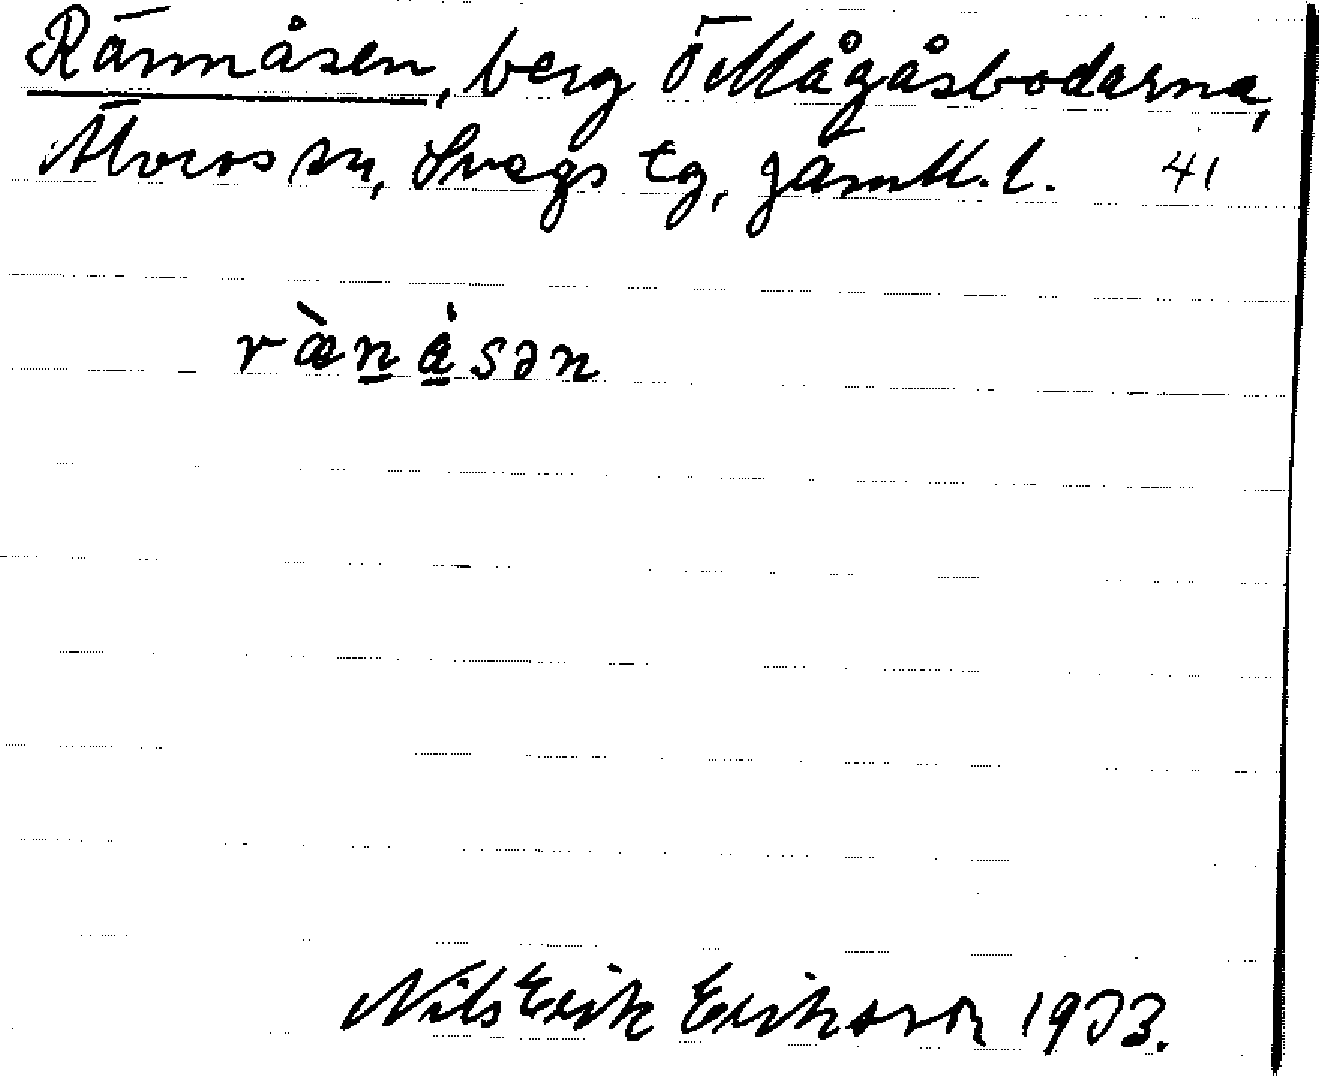 Rännåsen, berg Ö Mågåsbodarna,
Älvros sn, Svegs tg, Jämtl. l. 41
ràn̲å̲sən
Nils Erik Erikson 1933.